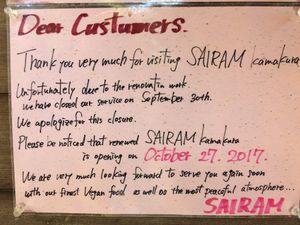 Dear Custumers.
Thank you very much for visiting SAIRAM kamakura
Unfortunately due to the renovatin work.
we have closed our service on September 30th.
We apologize for this closure.
Please be noticed that renewed SAIRAM kamakura
is opening on October 27. 2017.
We are very much looking forward to serve you again soon
with our finest Vegan food as well as the most peaceful atmosphere...
SAIRAM